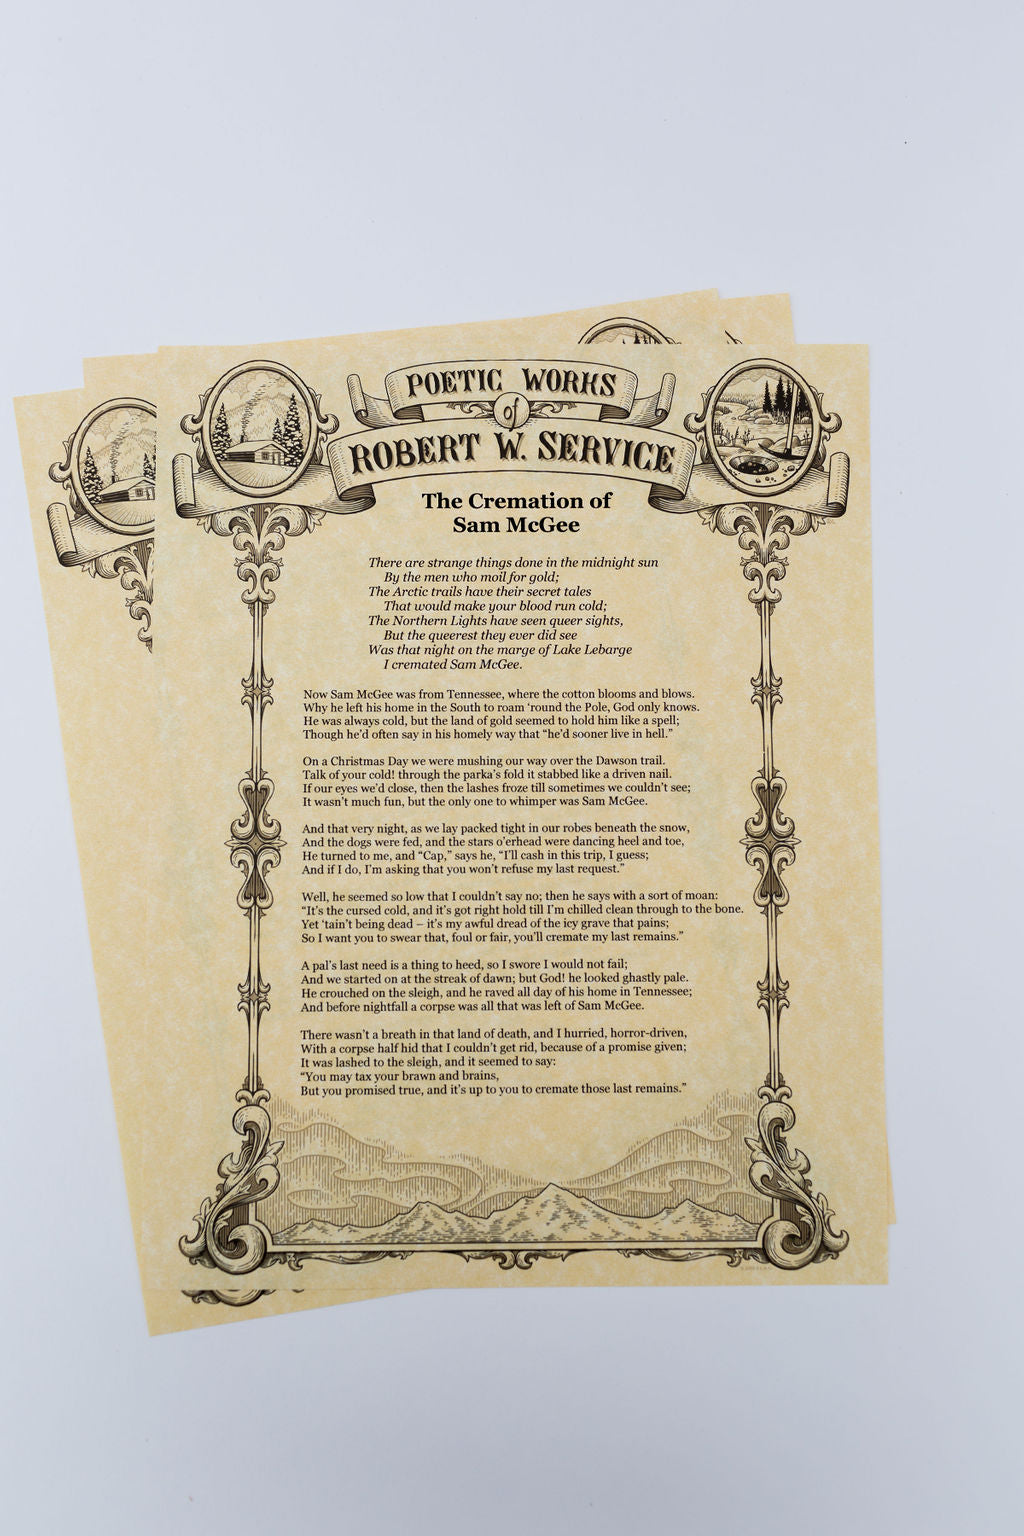 POETIC WORKS
of
ROBERT W. SERVICE
The Cremation of
Sam McGee
There are strange things done in the midnight sun
By the men who moil for gold;
The Arctic trails have their secret tales
That would make your blood run cold;
The Northern Lights have seen queer sights,
But the queerest they ever did see
Was that night on the marge of Lake Lebarge
I cremated Sam McGee.
Now Sam McGee was from Tennessee, where the cotton blooms and blows.
Why he left his home in the South to roam ‘round the Pole, God only knows.
He was always cold, but the land of gold seemed to hold him like a spell;
Though he’d often say in his homely way that “he’d sooner live in hell.”
On a Christmas Day we were mushing our way over the Dawson trail.
Talk of your cold! through the parka’s fold it stabbed like a driven nail.
If our eyes we’d close, then the lashes froze till sometimes we couldn’t see;
It wasn’t much fun, but the only one to whimper was Sam McGee.
And that very night, as we lay packed tight in our robes beneath the snow,
And the dogs were fed, and the stars o’erhead were dancing heel and toe,
He turned to me, and “Cap,” says he, “I’ll cash in this trip, I guess;
And if I do, I’m asking that you won’t refuse my last request.”
Well, he seemed so low that I couldn’t say no; then he says with a sort of moan:
“It’s the cursed cold, and it’s got right hold till I’m chilled clean through to the bone.
Yet ‘tain’t being dead – it’s my awful dread of the icy grave that pains;
So I want you to swear that, foul or fair, you’ll cremate my last remains.”
A pal’s last need is a thing to heed, so I swore I would not fail;
And we started on at the streak of dawn; but God! he looked ghastly pale.
He crouched on the sleigh, and he raved all day of his home in Tennessee;
And before nightfall a corpse was all that was left of Sam McGee.
There wasn’t a breath in that land of death, and I hurried, horror-driven,
With a corpse half hid that I couldn’t get rid, because of a promise given;
It was lashed to the sleigh, and it seemed to say:
“You may tax your brawn and brains,
But you promised true, and it’s up to you to cremate those last remains.”